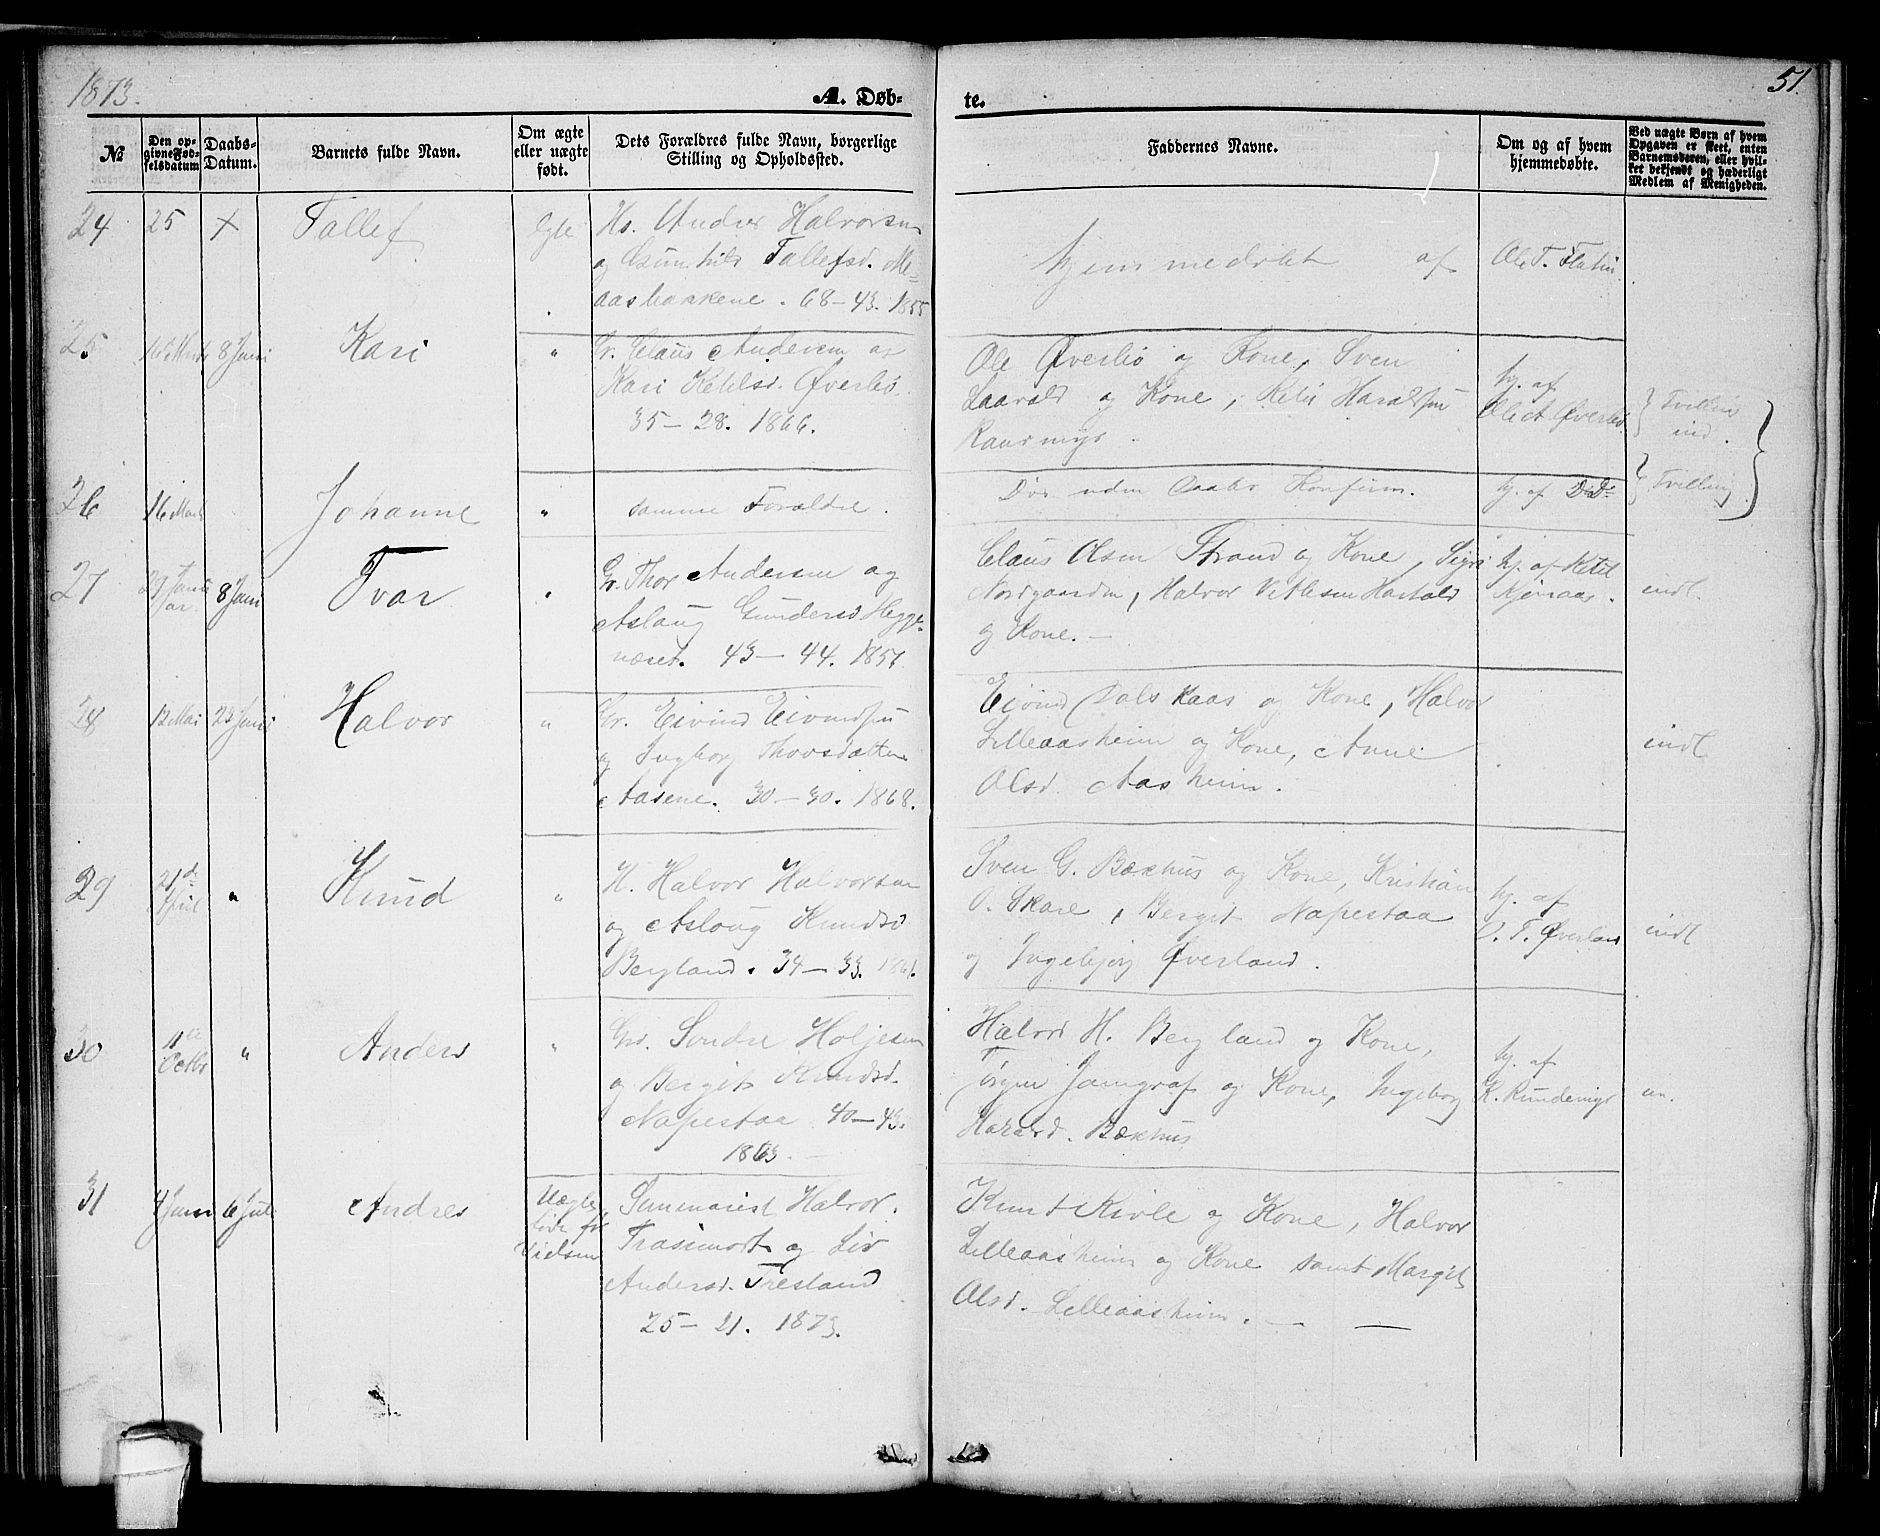 1873.
A. Døb-
te.
51.
№
Den op-
givne Fød-
selsdatum
Daabs-
Datum.
Barnets fulde Navn.
Om ægte
eller uægte
født.
Dets Forældres fulde Navn, borgerlige
Stilling og Opholdssted.
Faddernes Navne.
Om og af hvem
hjemmedøbte.
Ved uægte Børn af hvem
Opgaven er skeet, enten
Barnemoderen, eller hvil-
ket bekjendt og hæderligt
Medlem af Menigheden.
24 25 + Tallef Ægte
Hs. Anders Halvorsen
og Gunhild Tallefsd. Me-
aasbakkene. 68-43. 1855
hjemmedøbt af Ole T. Flatin
25 16 Marts 8 Juni Kari "
Gr. Claus Andersen og
Kari Ketilsd. Øverbø.
35-28. 1866.
Ole Øverbø og Kone, Sven
Laarald og Kone, Ketil Haraldsen
hj. af
Ole A Øverbø.
Tvilling
ind.
26 16 Marts Johanne "
samme Forældre.
Død uden Daabs Konfirm. hj. af Do Do
Tvilling
27 29 Janu
ar. 8 Juni Ivar "
Gr. Thor Andersen og
Aslaug Gundersd Hegge-
næset. 43-44. 1857.
Claus Olsen Strand og Kone, Sigri
Nordgaarden, Halvor Vetlesen
og Kone. -
hj. af Ketil
indt.
28 12 Mai 23 Juni Halvor "
Gr. Eivind Eivindsen
og Ingborg Thorsdatter
Aasene. 30-30. 1868.
Eivind Dalskaas og Kone, Halvor
Lilleaasheim og Kone, Anne
Olsd. Aasheim.
indt
29 21de
April " Knud "
H. Halvor Halvorsen
og Aslaug Knudsd
Bergland. 34-33. 1861.
Sven G. Bækhus og Kone, Kristian
O. Skare, Bergit Napestaa
og Ingebjørg Øverland.
hj. af
O. T. Øverland
indt
30 11te
Octbr " Anders "
Gr. Sondre Holjesen
og Bergit Knudsd.
Napestaa 40-43.
1863. -
Halvor H. Bergland og Kone,
Jamgraf og Kone, Ingeborg
Harald. Bækhus
hj. af
K. Rundemyr
an.
31 4 Juni 6 Juli Andres Uægte
født før
Vielsen
Seminarist Halvor
og Liv
Andersd. Tresland
25-21. 1873.
Knut Kivle og Kone, Halvor
Lilleaasheim og Kone samt Margit
Olsd. Lilleaasheim. - -